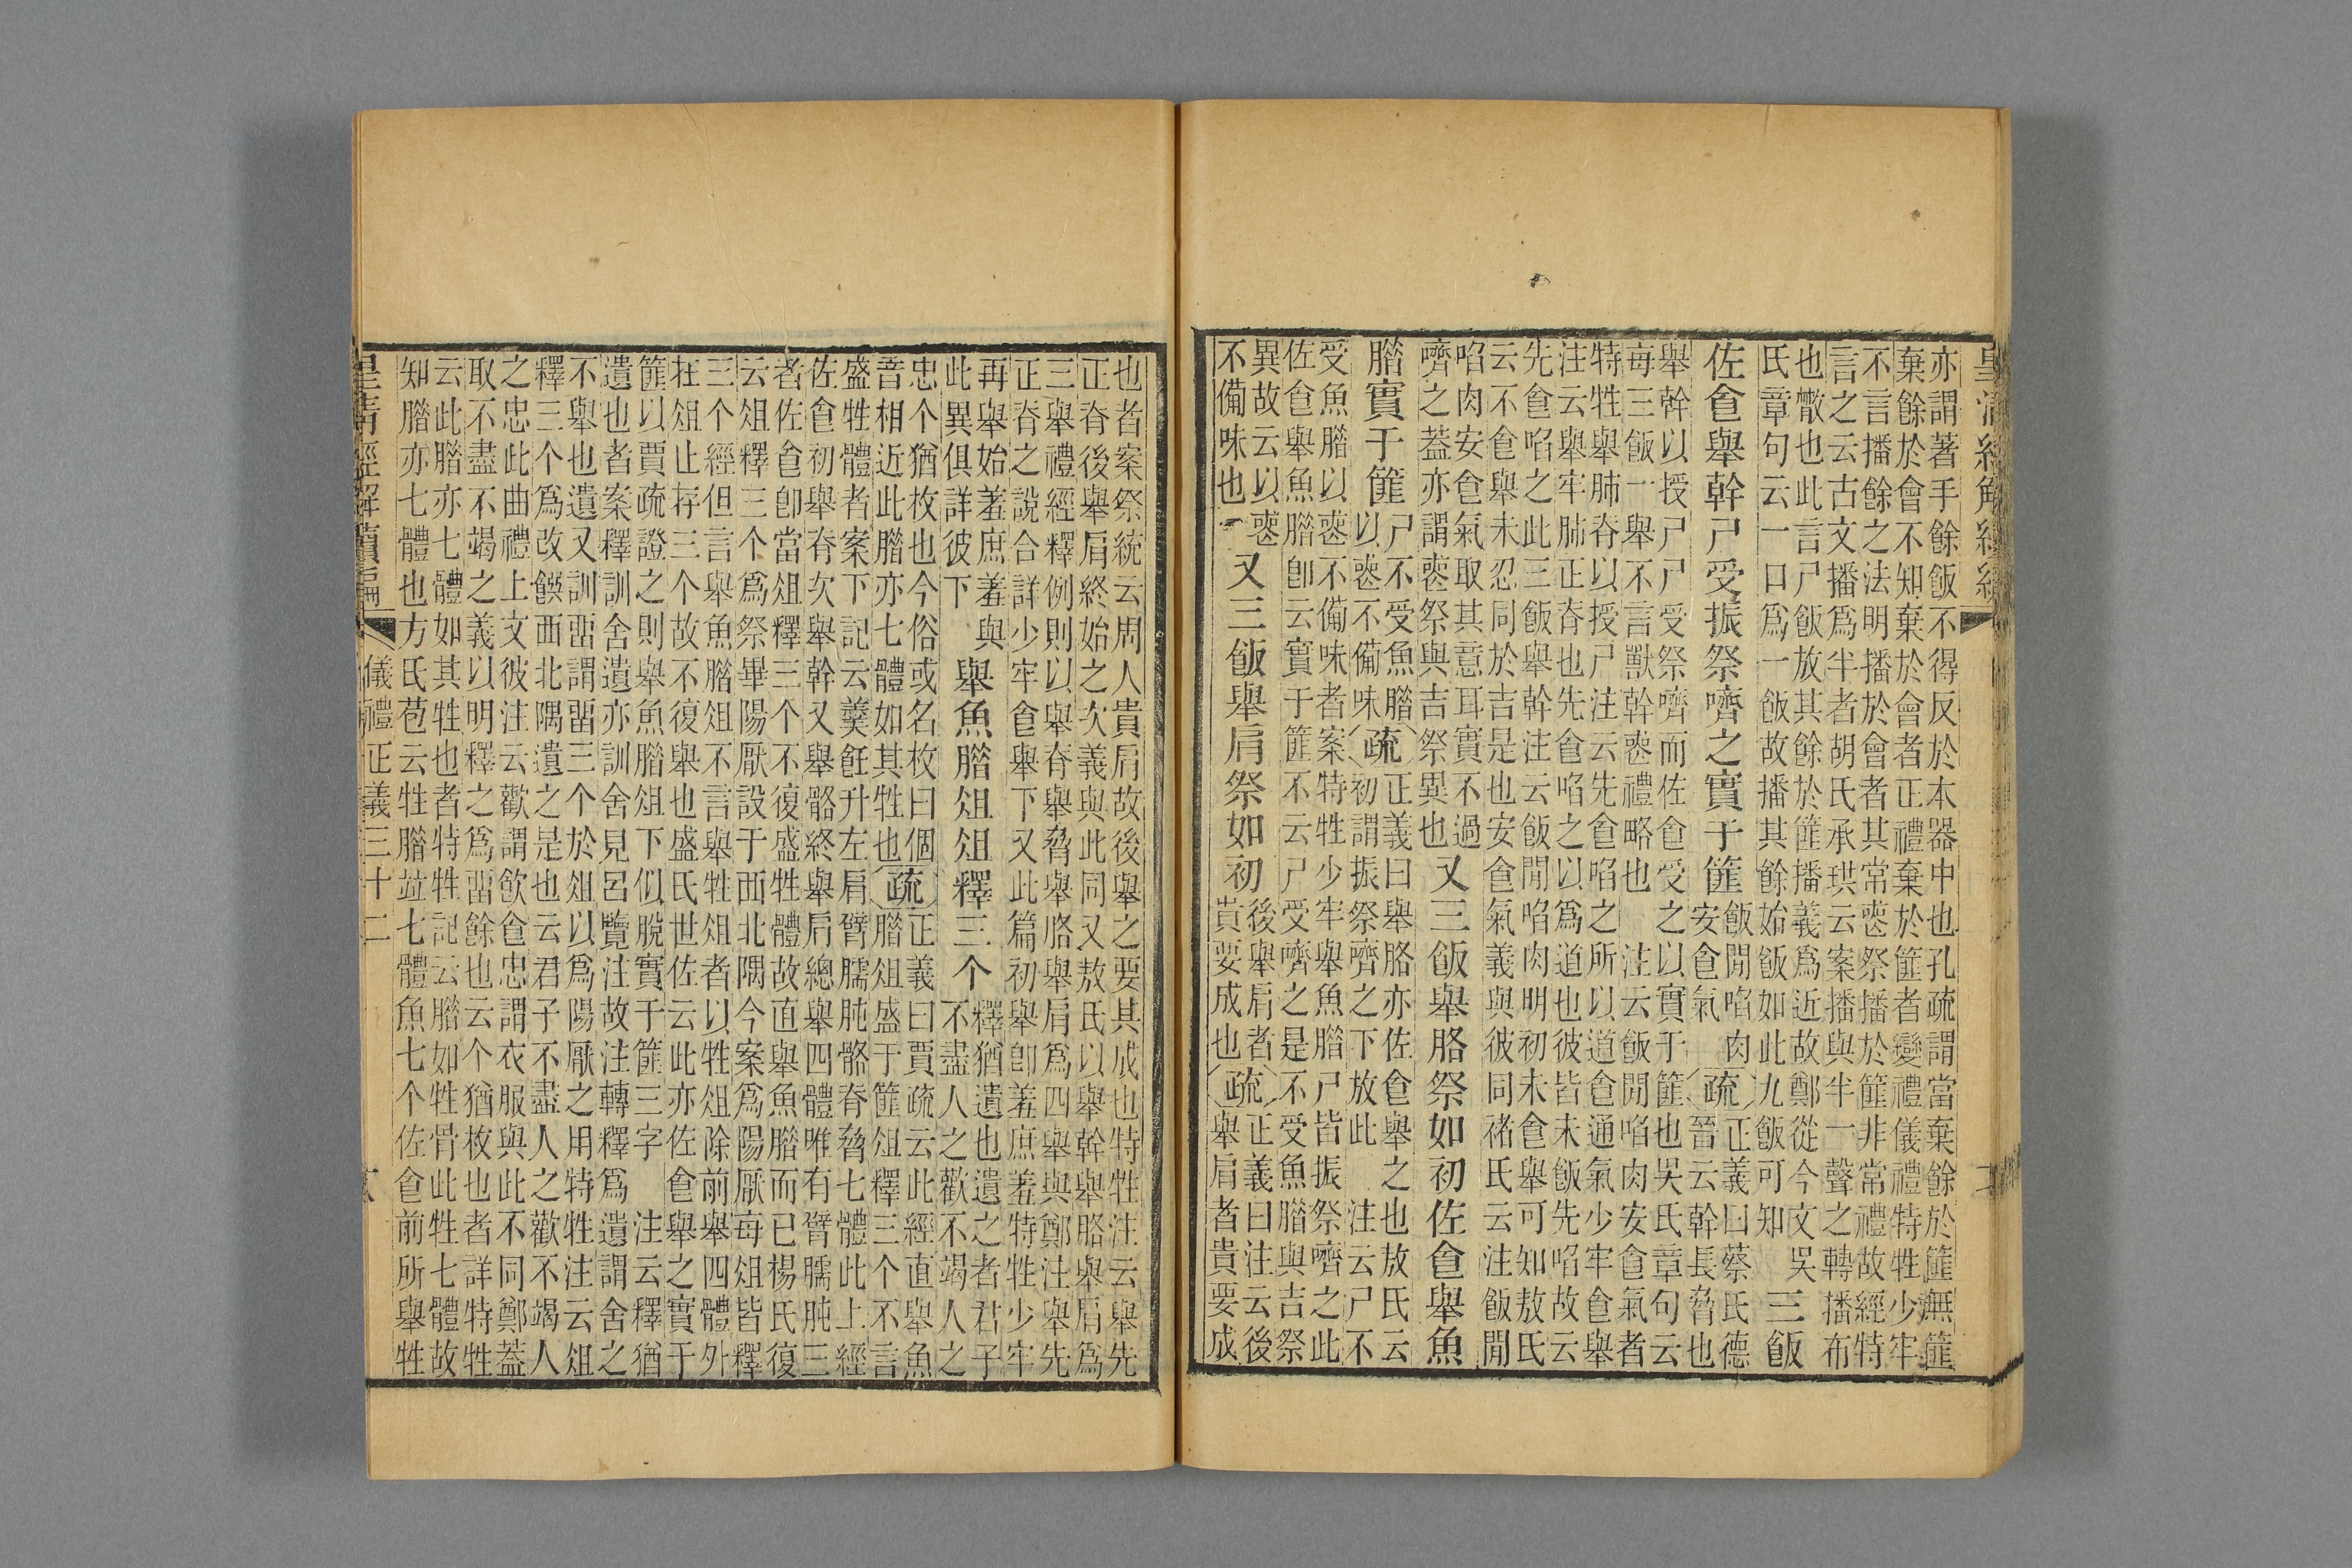 皇清經解續編
亦謂著手餘飯不得反於本器中也孔疏謂當棄餘於篚無篚
棄餘於會不知棄於會者正禮棄於篚者變禮儀禮特牲少牢
不言播餘之法明播於會者其常䘮祭播於篚非常禮故經特
言之云古文播爲半者胡氏承珙云案播與半一聲之轉播布
也㪚也此言尸飯放其餘於篚播義爲近故鄭從今文 吳
氏章句云一口爲一飯故播其餘始飯如此九飯可知
三飯
佐食舉幹尸受振祭嚌之實于篚
飯閒啗肉
安食氣
疏
正義曰蔡氏德
晉云幹長脅也
舉幹以授尸尸受祭嚌而佐食受之以實于篚也吳氏章句云
每三飯一舉不言獸幹䘮禮略也 注云飯閒啗肉安食氣者
特牲舉肺脊以授尸注云先食啗之所以道食通氣少牢食舉
注云舉牢肺正脊也先食啗之以爲道也彼皆未飯先啗故云
先食啗之此三飯舉幹注云飯閒啗肉明初未食舉可知敖氏
云不食舉未忍同於吉是也安食氣義與彼同褚氏云注飯閒
啗肉安食氣取其意耳實不過
嚌之蓋亦謂䘮祭與吉祭異也
又三飯舉胳祭如初佐食舉魚
腊實于篚
尸不受魚腊
以䘮不備味
疏
正義曰舉胳亦佐食舉之也敖氏云
初謂振祭嚌之下放此 注云尸不
受魚腊以䘮不備味者案特牲少牢舉魚腊尸皆振祭嚌之此
佐食舉魚腊卽云實于篚不云尸受嚌之是不受魚腊與吉祭
異故云以䘮
不備味也
又三飯舉肩祭如初
後舉肩者
貴要成也
疏
正義曰注云後
舉肩者貴要成
也者案祭統云周人貴肩故後舉之要其成也特牲注云舉先
正脊後舉肩終始之次義與此同又敖氏以舉幹舉胳舉肩爲
三舉禮經釋例則以舉脊舉脅舉胳舉肩爲四舉與鄭注舉先
正脊之說合詳少牢食舉下又此篇初舉卽羞庶羞特牲少牢
再舉始羞庶羞與
此異俱詳彼下
舉魚腊俎俎釋三个
釋猶遺也遺之者君子
不盡人之歡不竭人之
忠个猶枚也今俗或名枚曰個
音相近此腊亦七體如其牲也
疏
正義曰賈疏云此經直舉魚
腊俎盛于篚俎釋三个不言
盛牲體者案下記云羹飪升左肩臂臑肫骼脊脅七體此上經
佐食初舉脊次舉幹又舉骼終舉肩總舉四體唯有臂臑肫三
者佐食卽當俎釋三个不復盛牲體故直舉魚腊而已楊氏復
云俎釋三个爲祭畢陽厭設于西北隅今案爲陽厭每俎皆釋
三个經但言舉魚腊俎不言舉牲俎者以牲俎除前舉四體外
在俎止存三个故不復舉也盛氏世佐云此亦佐食舉之實于
篚以賈疏證之則舉魚腊俎下似脫實于篚三字 注云釋猶
遺也者案釋訓舍遺亦訓舍見呂覽注故注轉釋爲遺謂舍之
不舉也遺又訓畱謂畱三个於俎以爲陽厭之用特牲注云俎
釋三个爲改饌西北隅遺之是也云君子不盡人之歡不竭人
之忠此曲禮上文彼注云歡謂飲食忠謂衣服與此不同鄭蓋
取不盡不竭之義以明釋之爲畱餘也云个猶枚也者詳特牲
云此腊亦七體如其牲也者特牲記云腊如牲骨此牲七體故
知腊亦七體也方氏苞云牲腊竝七體魚七个佐食前所舉牲
皇清經解續編
儀禮正義三十二